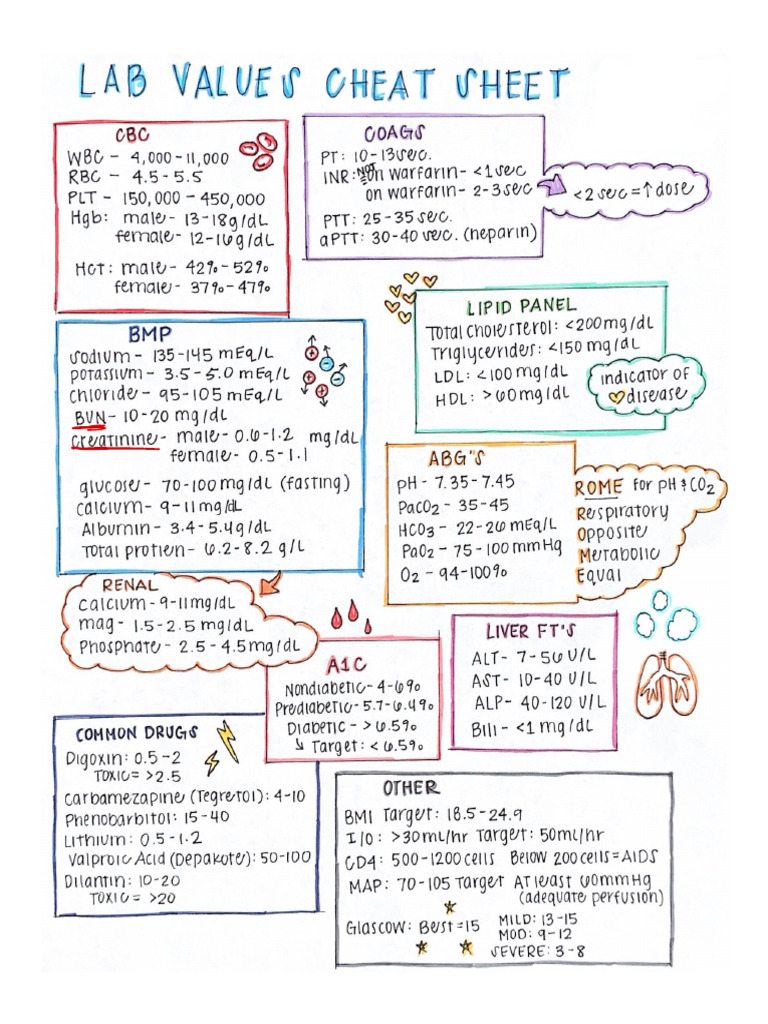 LAB VALUES CHEAT SHEET
CBC
WBC - 4,000-11,000
RBC - 4.5-5.5
PLT - 150,000 - 450,000
Hgb: male - 13-18g/dL
female - 12-16g/dL
Hct: male - 42% - 52%
female - 37% - 47%
COAGS
PT: 10-13 sec.
INR: NOT on warfarin - <1 sec
on warfarin - 2-3 sec
<2 sec = ↑ dose
PTT: 25-35 sec.
aPTT: 30-40 sec. (heparin)
LIPID PANEL
Total cholesterol: <200 mg/dL
Triglycerides: <150 mg/dL
LDL: <100 mg/dL
HDL: >60 mg/dL
indicator of
disease
BMP
Sodium - 135-145 mEq/L
Potassium - 3.5-5.0 mEq/L
Chloride - 95-105 mEq/L
BUN - 10-20 mg/dL
Creatinine - male - 0.6-1.2 mg/dL
female - 0.5-1.1
glucose - 70-100 mg/dL (fasting)
calcium - 9-11 mg/dL
Albumin - 3.4-5.4 g/dL
Total protien - 6.2-8.2 g/L
ABG'S
pH - 7.35-7.45
PaCO2 - 35-45
HCO3 - 22-26 mEq/L
PaO2 - 75-100 mmHg
O2 - 94-100%
ROME for pH & CO2
Respiratory
Opposite
Metabolic
Equal
RENAL
Calcium - 9-11 mg/dL
mag - 1.5-2.5 mg/dL
Phosphate - 2.5-4.5 mg/dL
A1C
Nondiabetic - 4-6%
Prediabetic - 5.7-6.49%
Diabetic - > 6.5%
↳ Target: < 6.5%
LIVER FT'S
ALT - 7-56 U/L
AST - 10-40 U/L
ALP - 40-120 U/L
Bili - <1 mg/dL
COMMON DRUGS
Digoxin: 0.5-2
TOXIC = >2.5
Carbamezapine (Tegretol): 4-10
Phenobarbitol: 15-40
Lithium: 0.5-1.2
Valproic Acid (Depakote): 50-100
Dilantin: 10-20
TOXIC = >20
OTHER
BMI Target: 18.5-24.9
I/O: >30ml/hr Target: 50ml/hr
CD4: 500-1200 cells Below 200 cells = AIDS
MAP: 70-105 Target At least 60mmHg
(adequate perfusion)
Glascow: Best = 15 MILD: 13-15
MOD: 9-12
SEVERE: 3-8